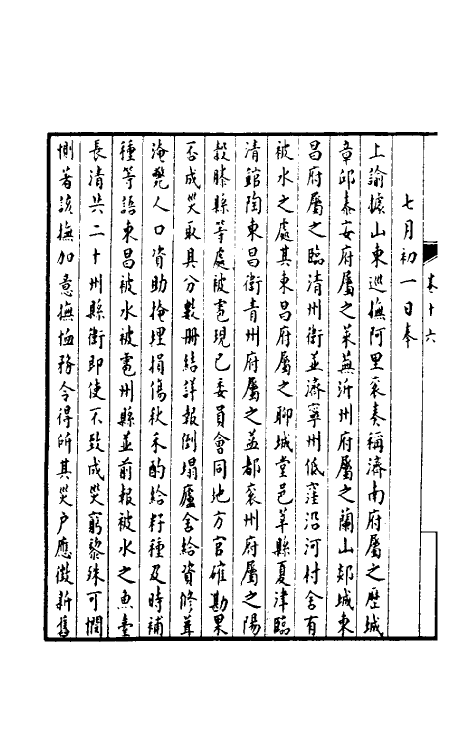 七月初一日奉
上諭據山東巡撫阿里衮奏稱濟南府屬之歷城
章邱泰安府屬之萊蕪沂州府屬之蘭山郯城東
昌府屬之臨清州衛並濟寧州低窪沿河村舍有
被水之處其東昌府屬之聊城堂邑莘縣夏津臨
清館陶東昌衛青州府屬之益都兗州府屬之陽
穀滕縣等處被雹現已委員會同地方官確勘果
否成災取具分數册結詳報倒塌廬舍給資修葺
淹斃人口資助掩埋損傷秋禾酌給籽種及時補
種等語東昌被水被雹州縣並前報被水之魚臺
長清共二十州縣衛即使不致成災窮黎殊可憫
惻著該撫加意撫恤務令得所其災戶應徵新舊
卷十六